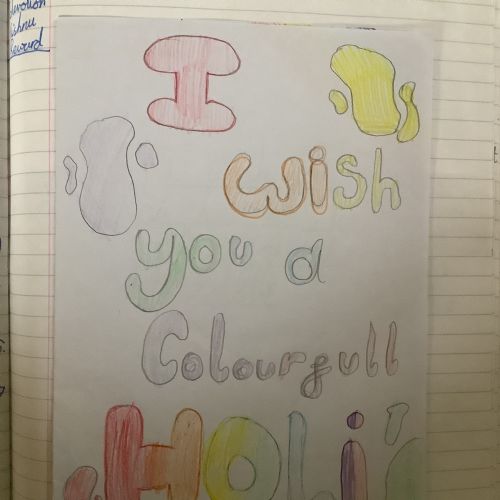 I
wish
you a
Colourfull
HOLi